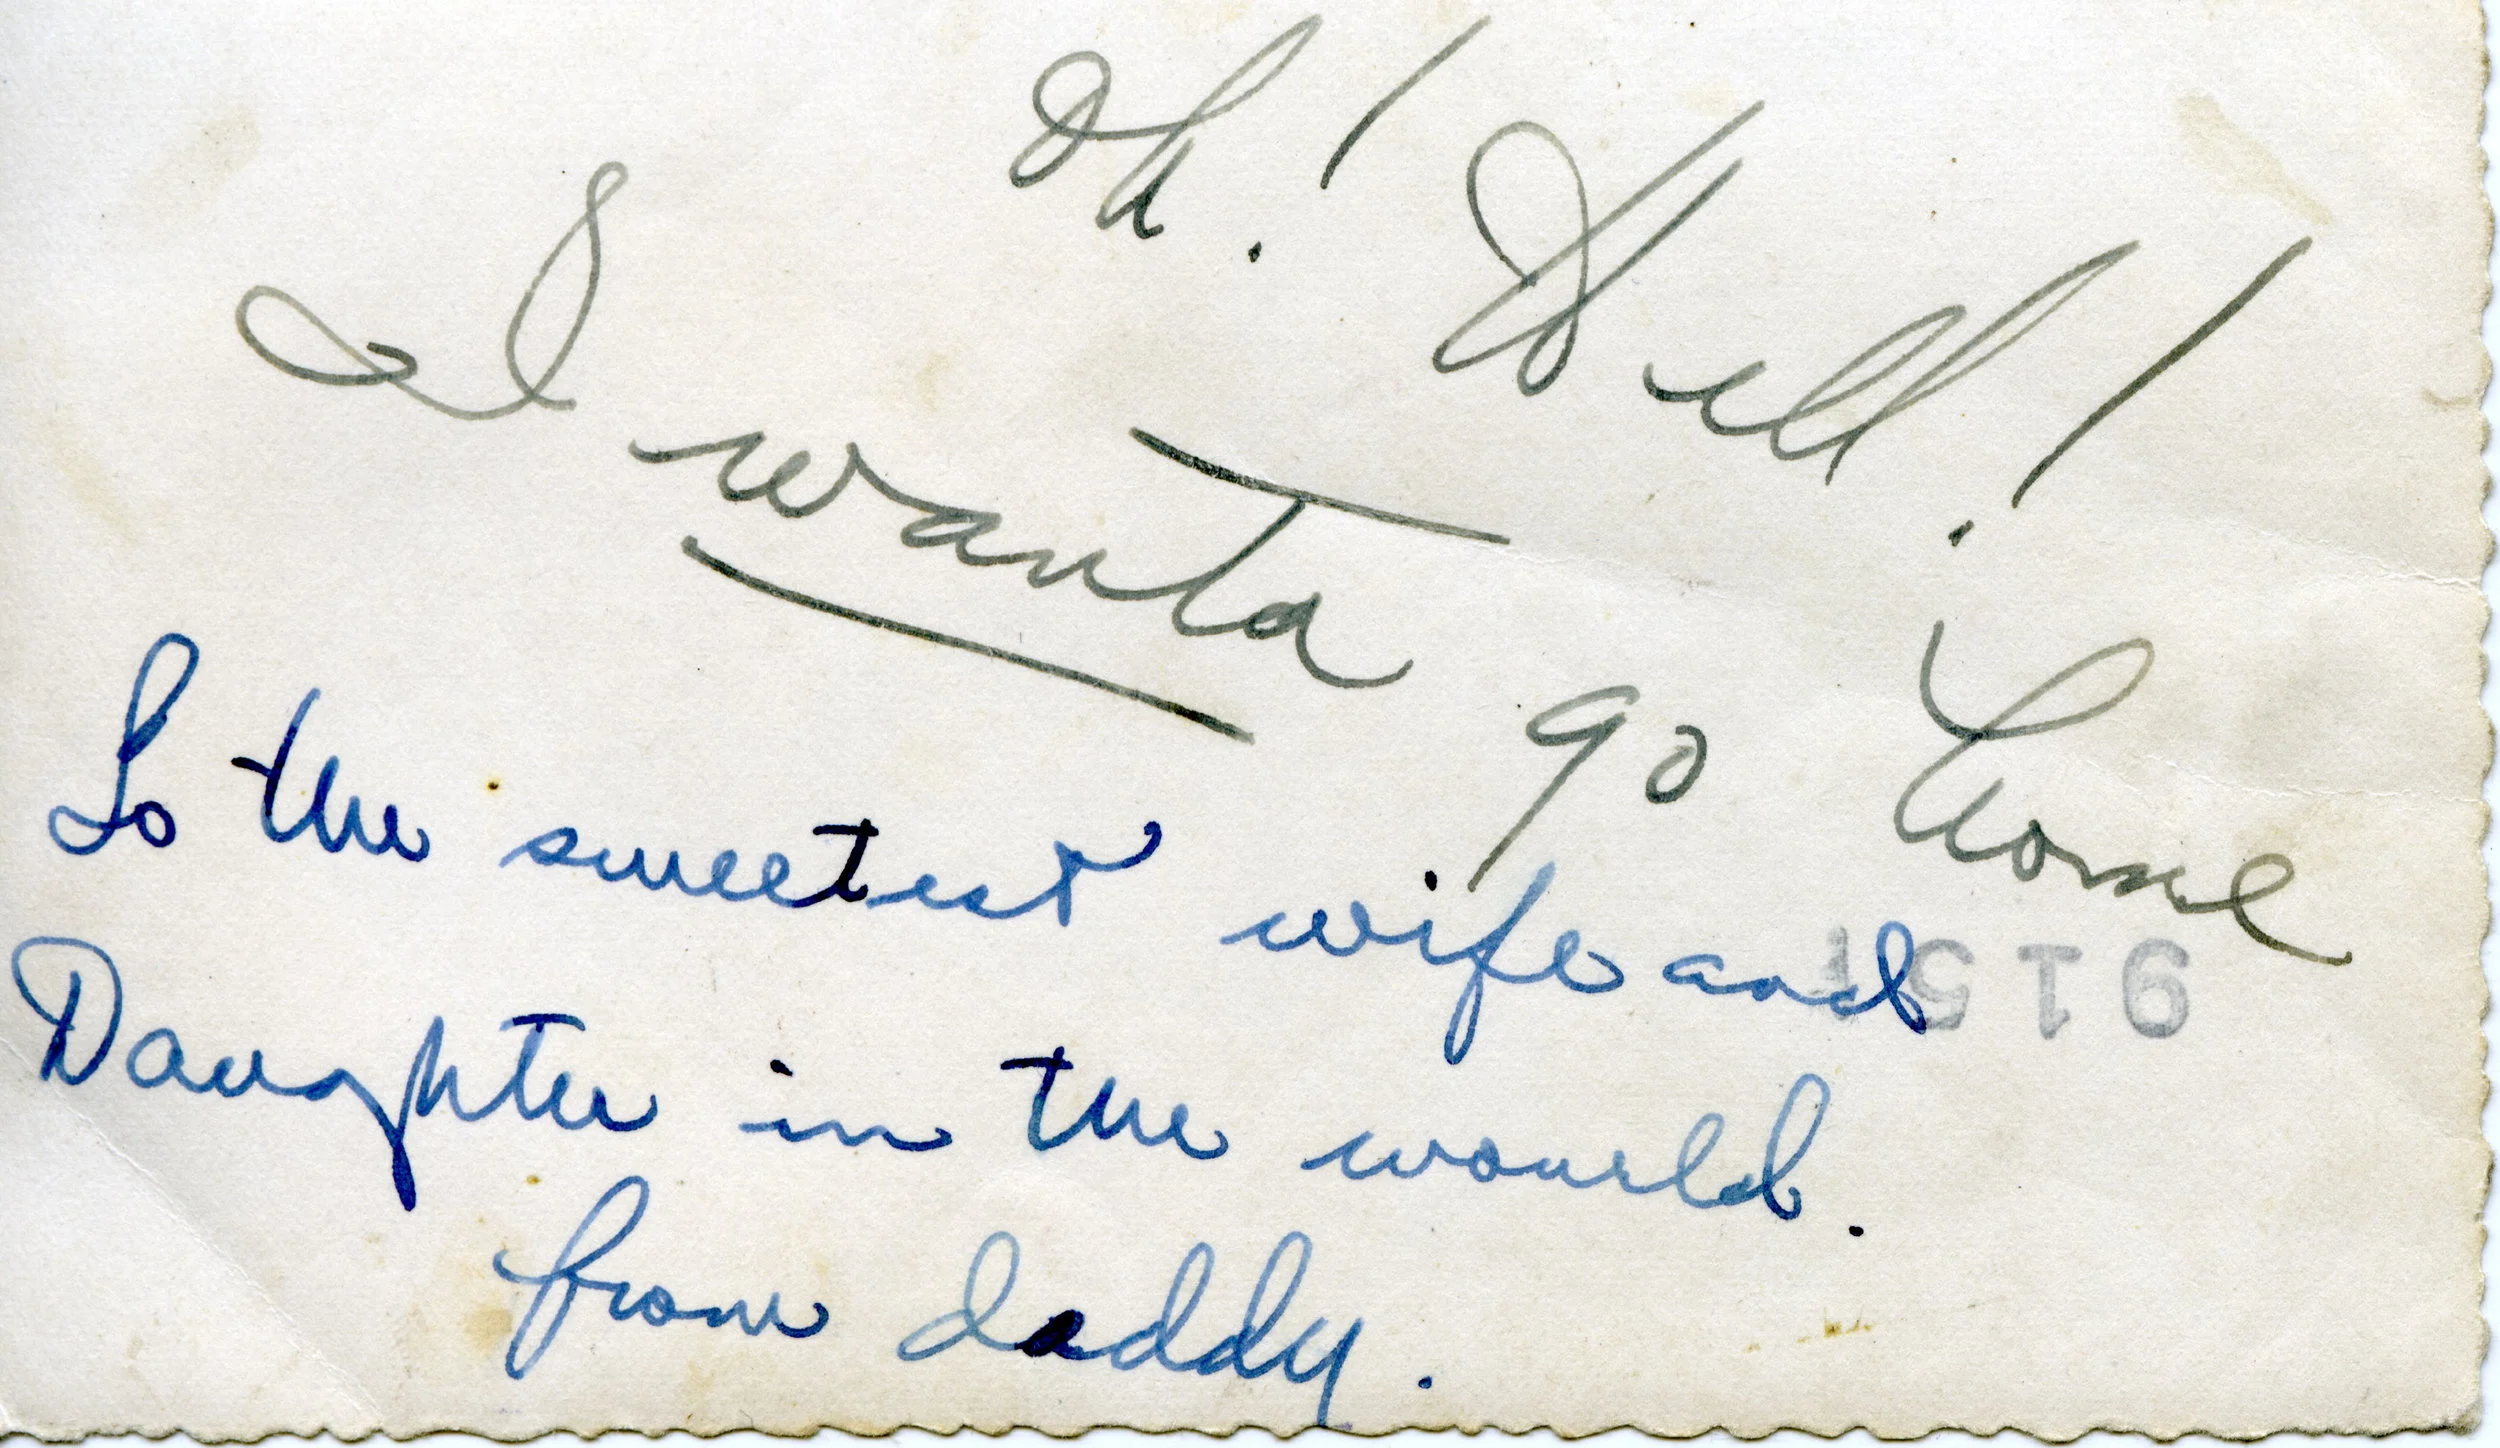 Oh! Hell!
I wanta go home
To the sweetest wife and
Daughter in the wourld.
from daddy.